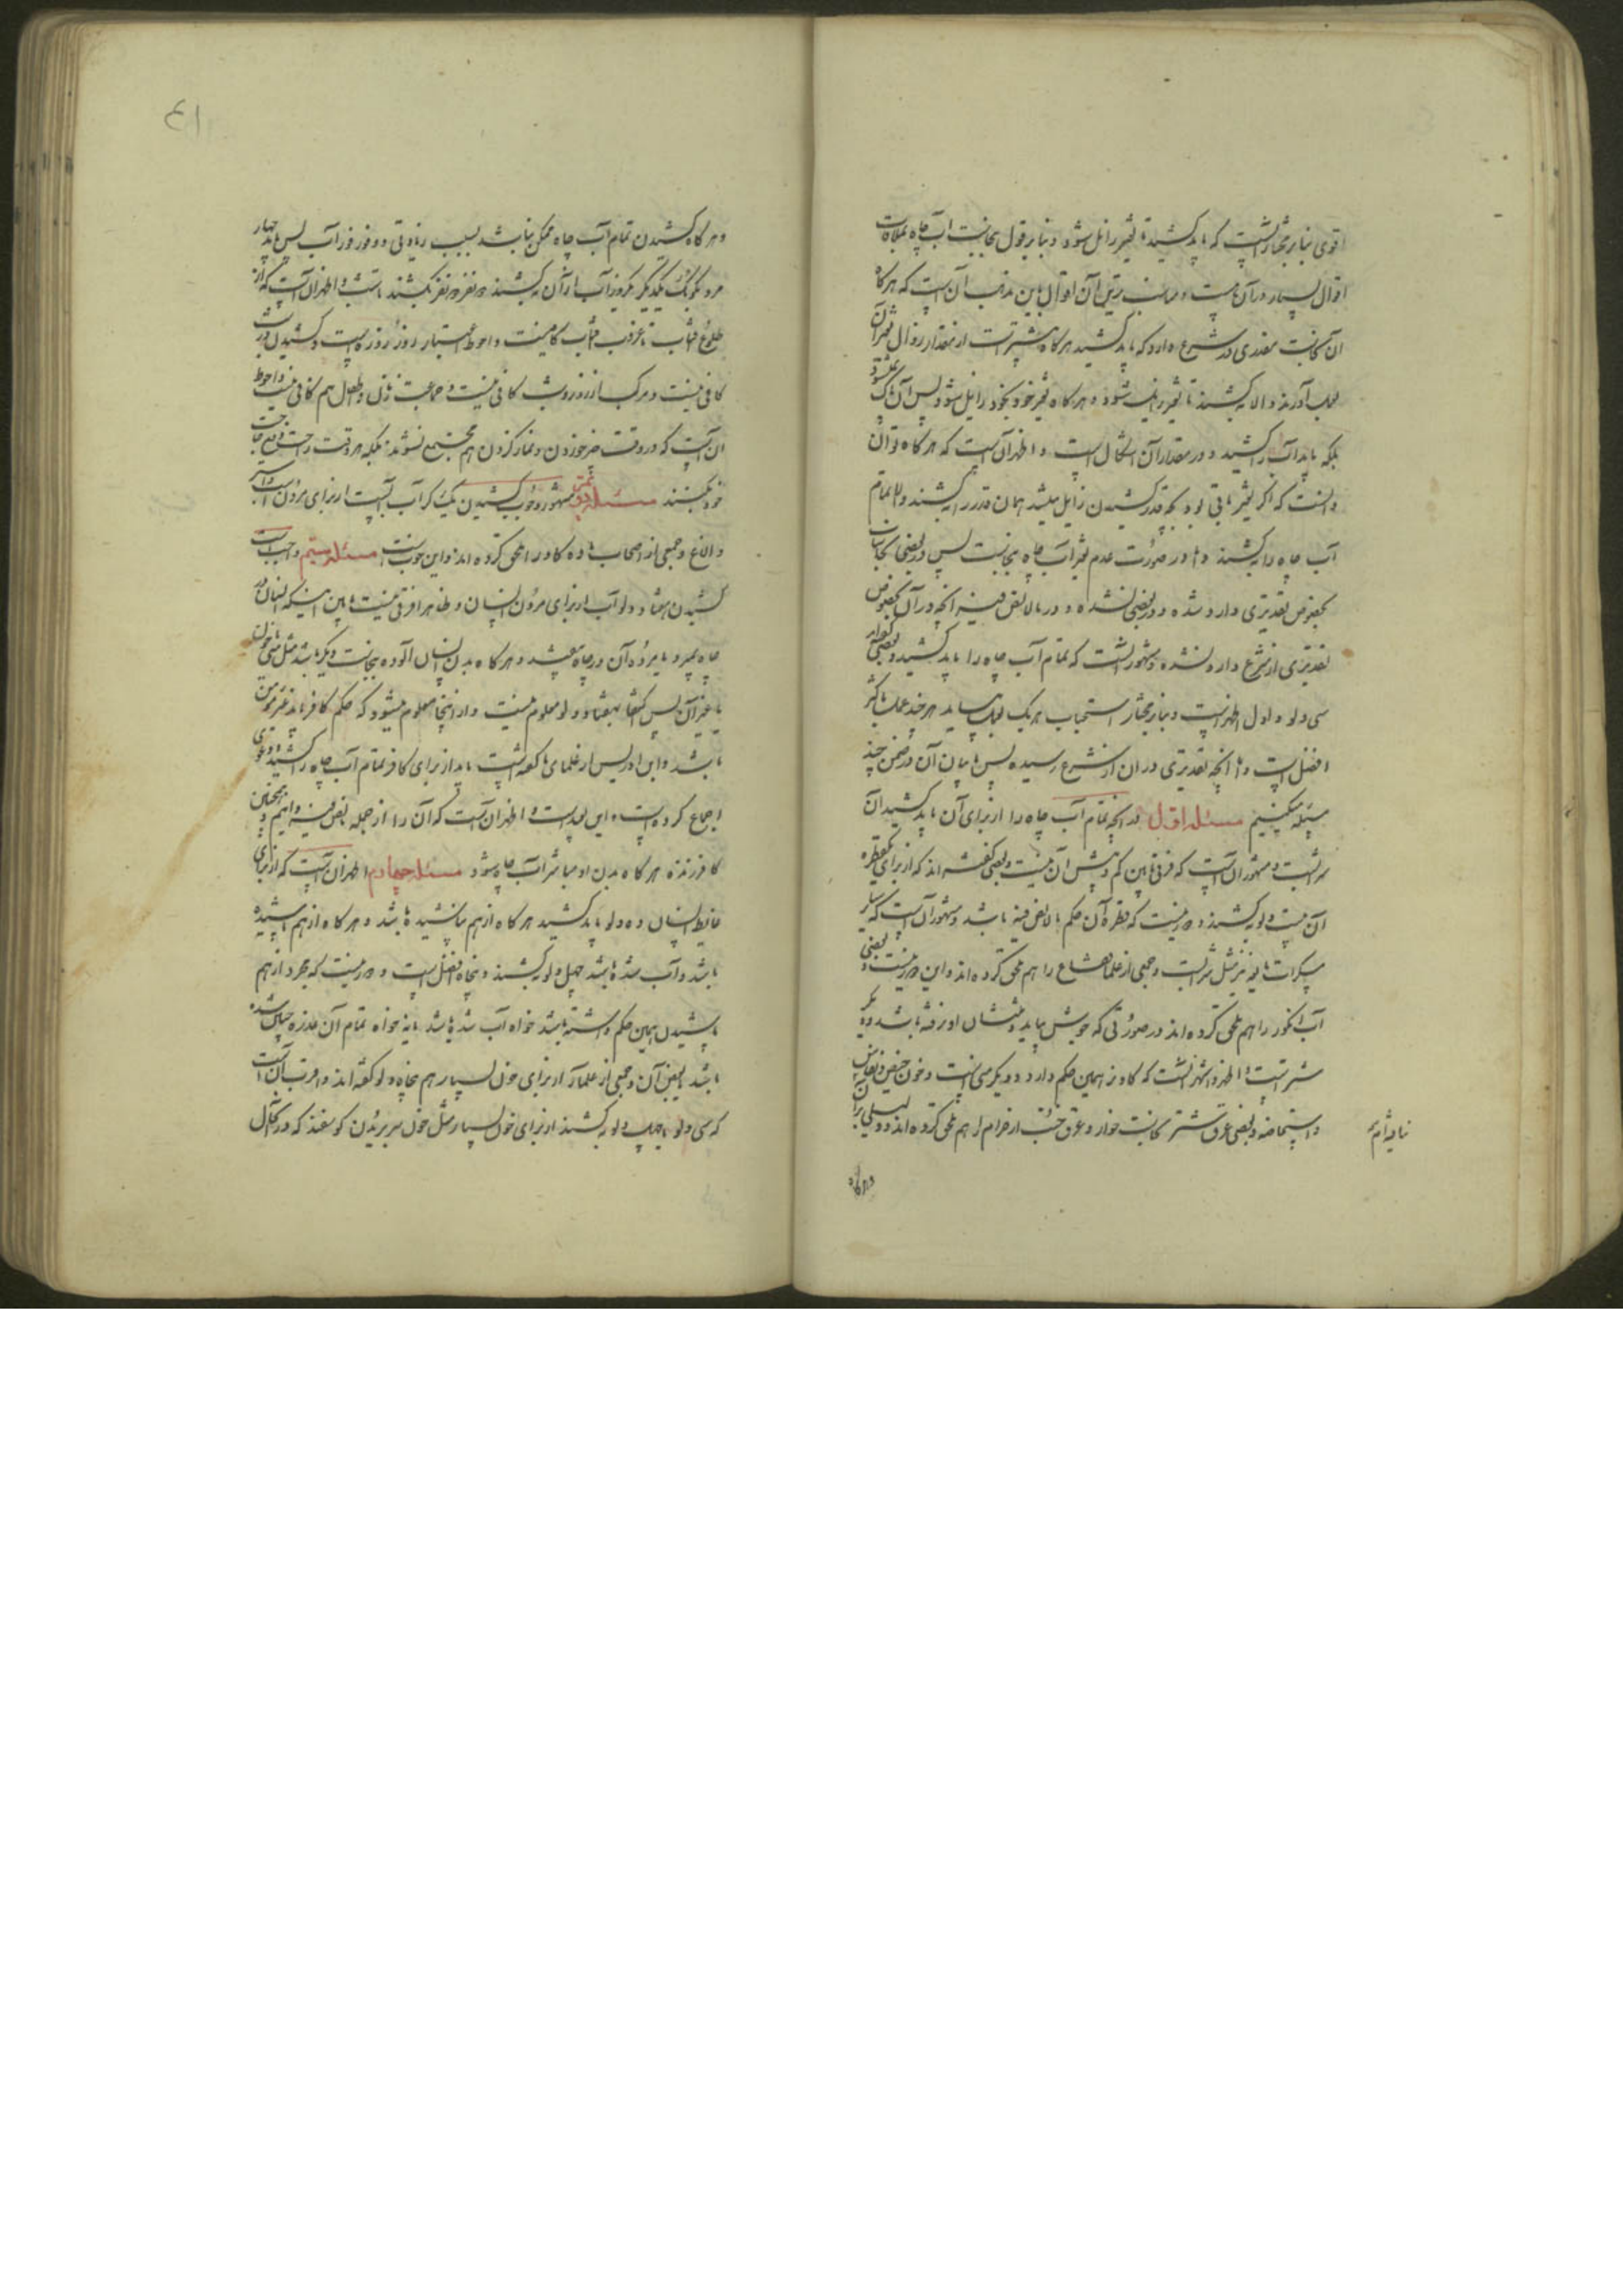 اقوی بنا بر مختار آنست که باید کشید تا تغیر زایل شود و بنا بر قول بنجاست آب چاه بملاقات
اقوال بسیار در آن هست و مناسب ترین آن اقوال باین مذهب آن است که هرگاه
آن نجاست مقدری در شرع دارد که باید کشید هرگاه بیشتر است از مقدار زوال تغیر آن
بعمل آورند و الا بکشند تا تغیر زایل شود و هرگاه تغیر خود بخود زایل شود پس آن پاک نمیشود
بلکه باید آب را کشید و در مقدار آن اشکال است و اظهر آن است که هرگاه توان
دانست که اگر تغیر باقی بود بچه قدر کشیدن زایل میشد همان قدر را بکشند و الا تمام
آب چاه را بکشند و اما در صورت عدم تغیر آب چاه بنجاست پس در بعضی نجاسات
بخصوص تقدیری وارد شده و در بعضی نشده و در ما لا نص فیه انچه در آن بخصوص
تقدیری از شرع وارد نشده مشهور آنست که تمام آب چاه را باید کشید و بعضی گفته‌اند
سی دلو و اول اظهر است و بنا بر مختار استحباب هر یک بعمل می‌آید هر چند عمل باکثر
افضل است و اما انچه تقدیری در آن از شرع رسیده پس ما بیان آن در ضمن چند
مسئله میکنیم مسئله اول در انچه تمام آب چاه را از برای آن باید کشید آن
شرابست و مشهور آن است که فرقی مابین کم و بیش آن نیست و بعضی گفته‌اند که از برای یکقطره
آن بیست دلو بکشند و دور نیست که قطره آن حکم ما لا نص فیه باشد و مشهور آن است که سایر
مسکرات مایعه نیز مثل شرابست و جمعی از علما فقاع را هم ملحق کرده‌اند و این دور نیست و بعضی
آب انگور را هم ملحق کرده‌اند در صورتی که جوش بیاید و ثلثان او نرفته باشد و دیگر
شتر است و اظهر و اشهر آنست که گاو نر همین حکم دارد و دیگر منی است و خون حیض و نفاس
و استحاضه و بعضی عرق شتر نجاست خوار و عرق جنب از حرام را هم ملحق کرده‌اند و دلیلی برآن
نیافته‌ایم
و هرگاه
٤١
و هرگاه کشیدن تمام آب چاه ممکن نباشد بسبب زیادتی و وفور آب پس باید چهار
مرد بکومک یکدیگر یکروز آب از آن بکشند دو نفر دو نفر بکشند تا شب و اظهر آن است که از
طلوع آفتاب تا غروب آفتاب کافیست و احوط اعتبار روز روزه است و کشیدن در شب
کافی نیست و مرکب از روز و شب کافی نیست و جماعت زنان و طفل هم کافی نیست و احوط
آن است که در وقت چیز خوردن و نماز کردن هم مجتمع نشوند بلکه هر وقت راحت رفع حاجت
خود بکنند مسئله دویم مشهور وجوب کشیدن یک کر آب است از برای مردن اسب
و الاغ و جمعی از اصحاب ماده گاو را ملحق کرده‌اند و این خوب است مسئله سیم واجب است
کشیدن هفتاد دلو آب از برای مردن انسان و ظاهرا فرقی نیست مابین اینکه انسان در
چاه بمیرد یا مرده آن در چاه بیفتد و هرگاه بدن انسان آلوده بنجاست دیگر باشد مثل منی و خون
یا غیر آن پس اکتفا بهفتاد دلو معلوم نیست و از اینجا معلوم میشود که حکم کافر باید غیر مؤمن
باشد و ابن ادریس از علمای ما گفته است باید از برای کافر تمام آب چاه را کشید و دعوی
اجماع کرده است و این بعید است و اظهر آن است که آن را از جمله ما لا نص فیه دانیم و همچنین
کافر زنده هرگاه بدن او مباشر آب چاه شود مسئله چهارم اظهر آن است که از برای
غایط انسان ده دلو باید کشید هرگاه از هم نپاشیده باشد و هرگاه از هم پاشیده
باشد و آب شده باشد چهل دلو بکشند و پنجاه افضل است و دور نیست که بمجرد از هم
پاشیدن همین حکم داشته باشد خواه آب شده باشد یا نه خواه تمام آن هرزه چنین شده
باشد یا بعض آن و جمعی از علما آن از برای خون بسیار هم پنجاه دلو گفته‌اند و اقرب آن است
که سی دلو یا چهل دلو بکشند از برای خون بسیار مثل خون سر بریدن گوسفند که در کمال